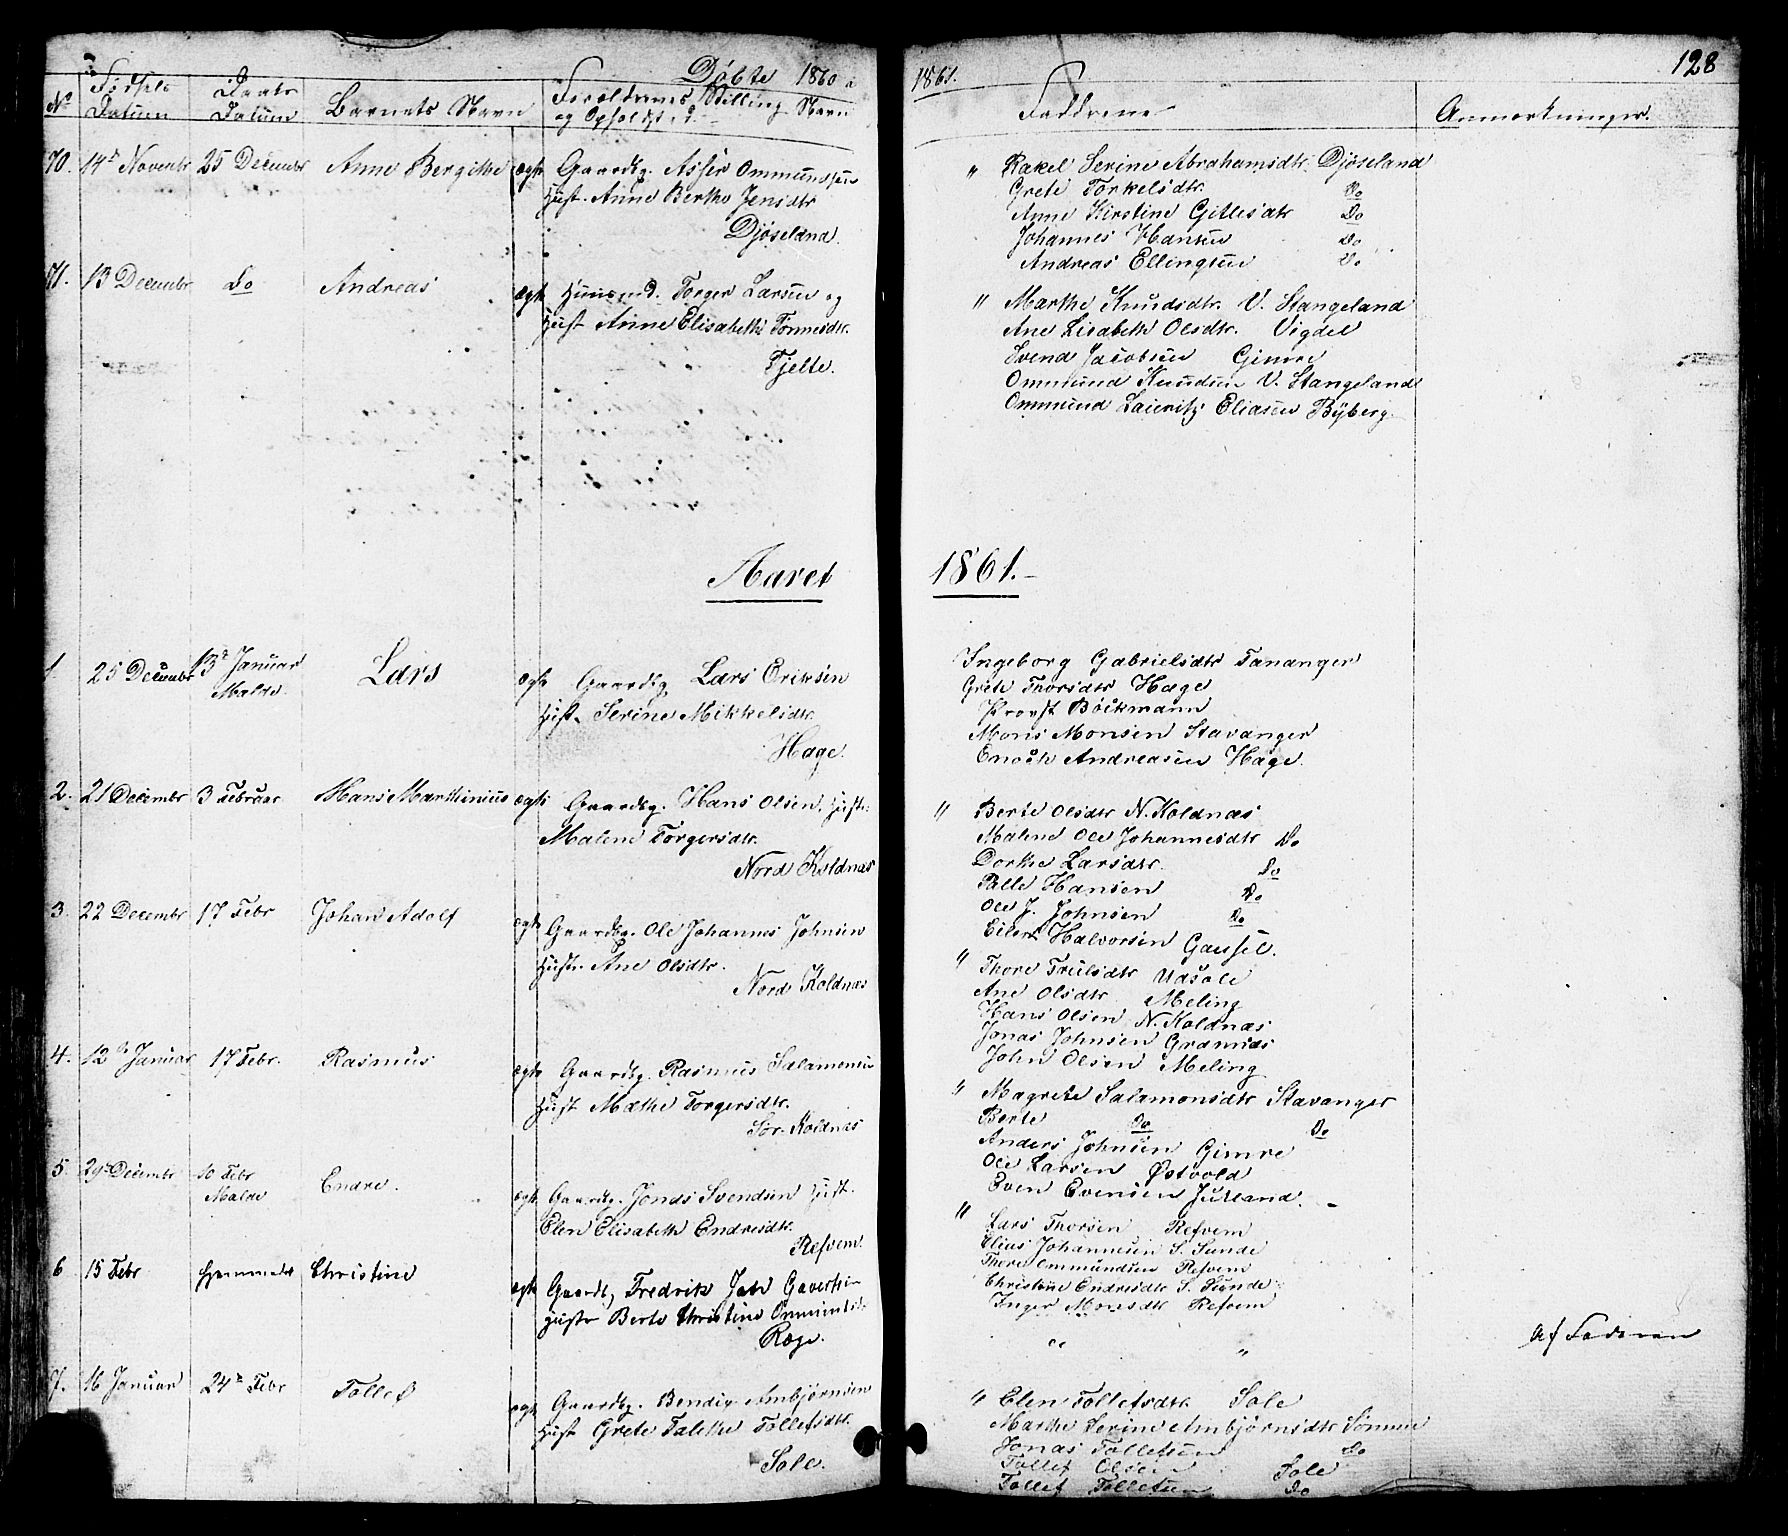 Døbte 1860 a
1861.
128
No
Fødsels Datum
Daabs Datum
Barnets Navn
Forældrenes Stilling Navn
og Opholdst.
Faddrene
Anmærkninger.
70. 14de Novembr 25 Decembr Anne Bergithe ægte Gaardbg. Asser Ommundsen
Hust. Anne Berthe Jensdtr
Djøseland.
" Rakel Serine Abrahamsdtr. Djøseland
Grete Torkelsdtr. Do
Anne Kirstine Gitlesdtr Do
Johannes Hansen Do
Andreas Ellingsen Do
71. 13 Decembr Do Andreas ægte Huusmd. Torger Larsen og
Hust Anne Elisabeth Tønnesdtr.
Tjelte.
" Marthe Knudsdtr. V. Stangeland
Ane Lisabeth Olsdtr. Vigdel
Svend Jacobsen Gimre
Ommund Knudsen V. Stangeland
Ommund Lauritz Eliasen Byberg
Aaret 1861.-
1 25 Decembr 13de Januar
Malde. Lars ægte Gaardbg Lars Eriksen
Hust. Serine Mikkelsdtr.
Hage.
Ingeborg Gabrielsdtr Tananger
Grete Thorsdtr Hage
Provst Bøckmann
Mons Monsen Stavanger
Enoch Andreasen Hage.
2. 21 Decembr 3 Februar Hans Marthinius ægte Gaardbg. Hans Olsen, Hust.
Malene Torgersdtr.
Nord Koldnæs
" Berte Olsdtr N. Koldnæs
Malene Ole Johannesdtr Do
Dorthe Larsdtr. Do
Palle Hansen Do
Ole J. Johnsen Do
Eilert Halvorsen Gausel.
3. 22 Decembr 17 Febr Johan Adolf ægte Gaardbg. Ole Johannes Johnsen
Hustr. Ane Olsdtr.
Nord Koldnæs
" Thore Trulsdtr Udsole
Ane Olsdtr Meling
Hans Olsen N. Koldnæs
Jonas Johnsen Grannæs
John Olsen Meling
4. 12te Januar 17 Febr. Rasmus ægte Gaardbg. Rasmus Salamonsen
Hust Mathe Torgersdtr.
Sør-Koldnæs
" Magrete Salamonsdtr Stavanger
Berte Do Do
Anders Johnsen Gimre
Ole Larsen Østvold
Even Evensen Julland. -
5. 29 Decembr 10 Febr
Malde Endre. ægte Gaardbg. Jonas Svendsen Hust.
Elen Elisabeth Endresdtr.
Refvem.
" Lars Thorsen Refvem
Elias Johannesen S. Sunde
Thore Ommundsen Refvem
Christine Endresdtr S. Sunde
Inger Monsdtr Refvem
6 15 Febr Hjemmedt Christine ægte Gaardb, Fredrik
Hustr Berte Christine
Ræge.
" "
af Faderen
7. 16 Januar 24de Febr Tollef ægte Gaardbg. Bendig Ambjørnsen
Hust Grete Talethe Tollefsdtr.
Sole.
" Elen Tollefsdtr. Sole
Marthe Serine Ambjørnsdtr Sømme
Jonas Tollefsen Do
Tollef Olsen Sole
Tollef Tollefsen Do